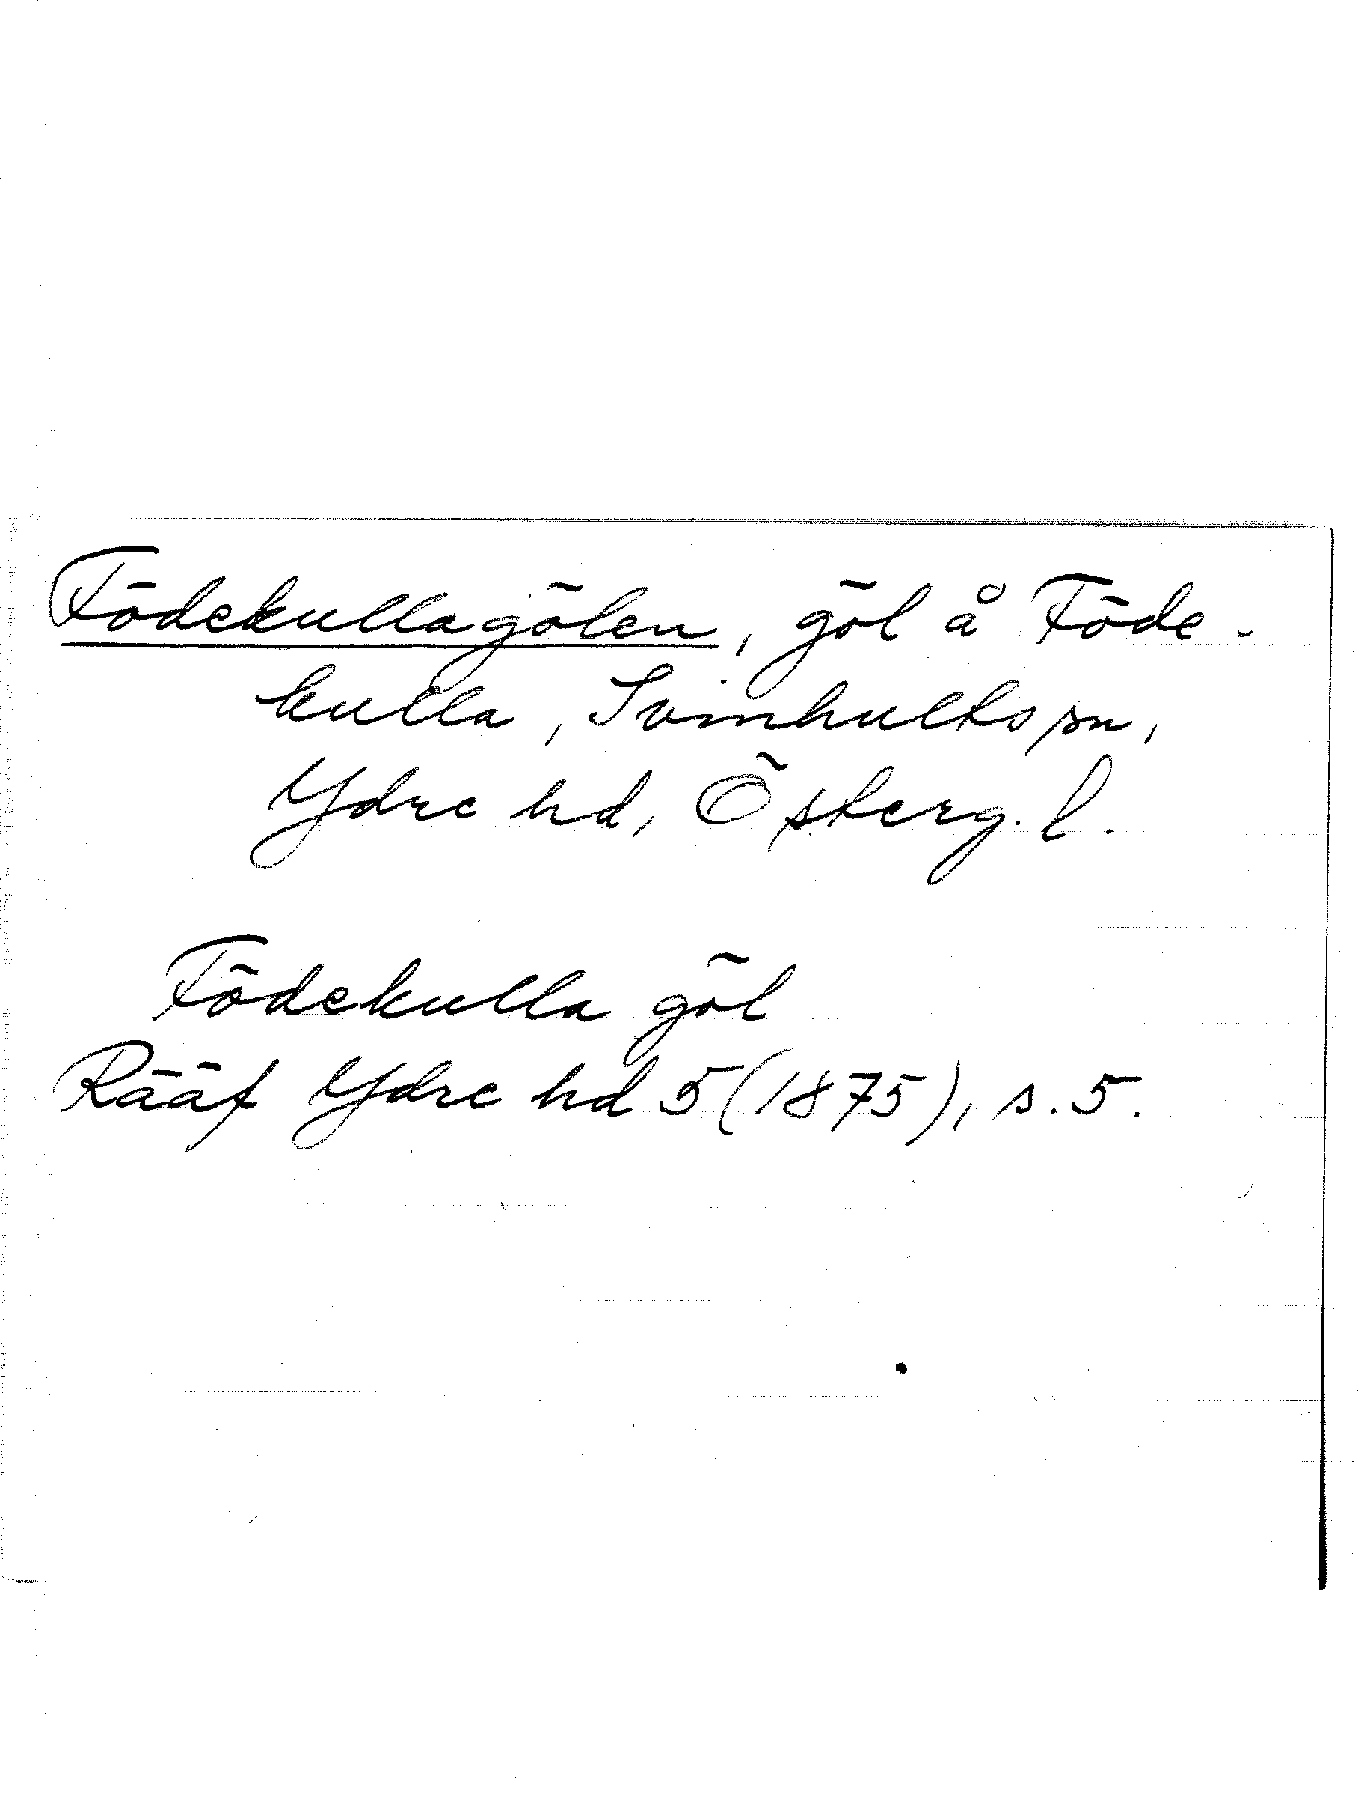 Födekullagölen, göl å Föde-
kulla, Svinhults sn,
Ydre hd, Österg. l.
Födekulla göl
Rääf Ydre hd 5 (1875), s. 5.